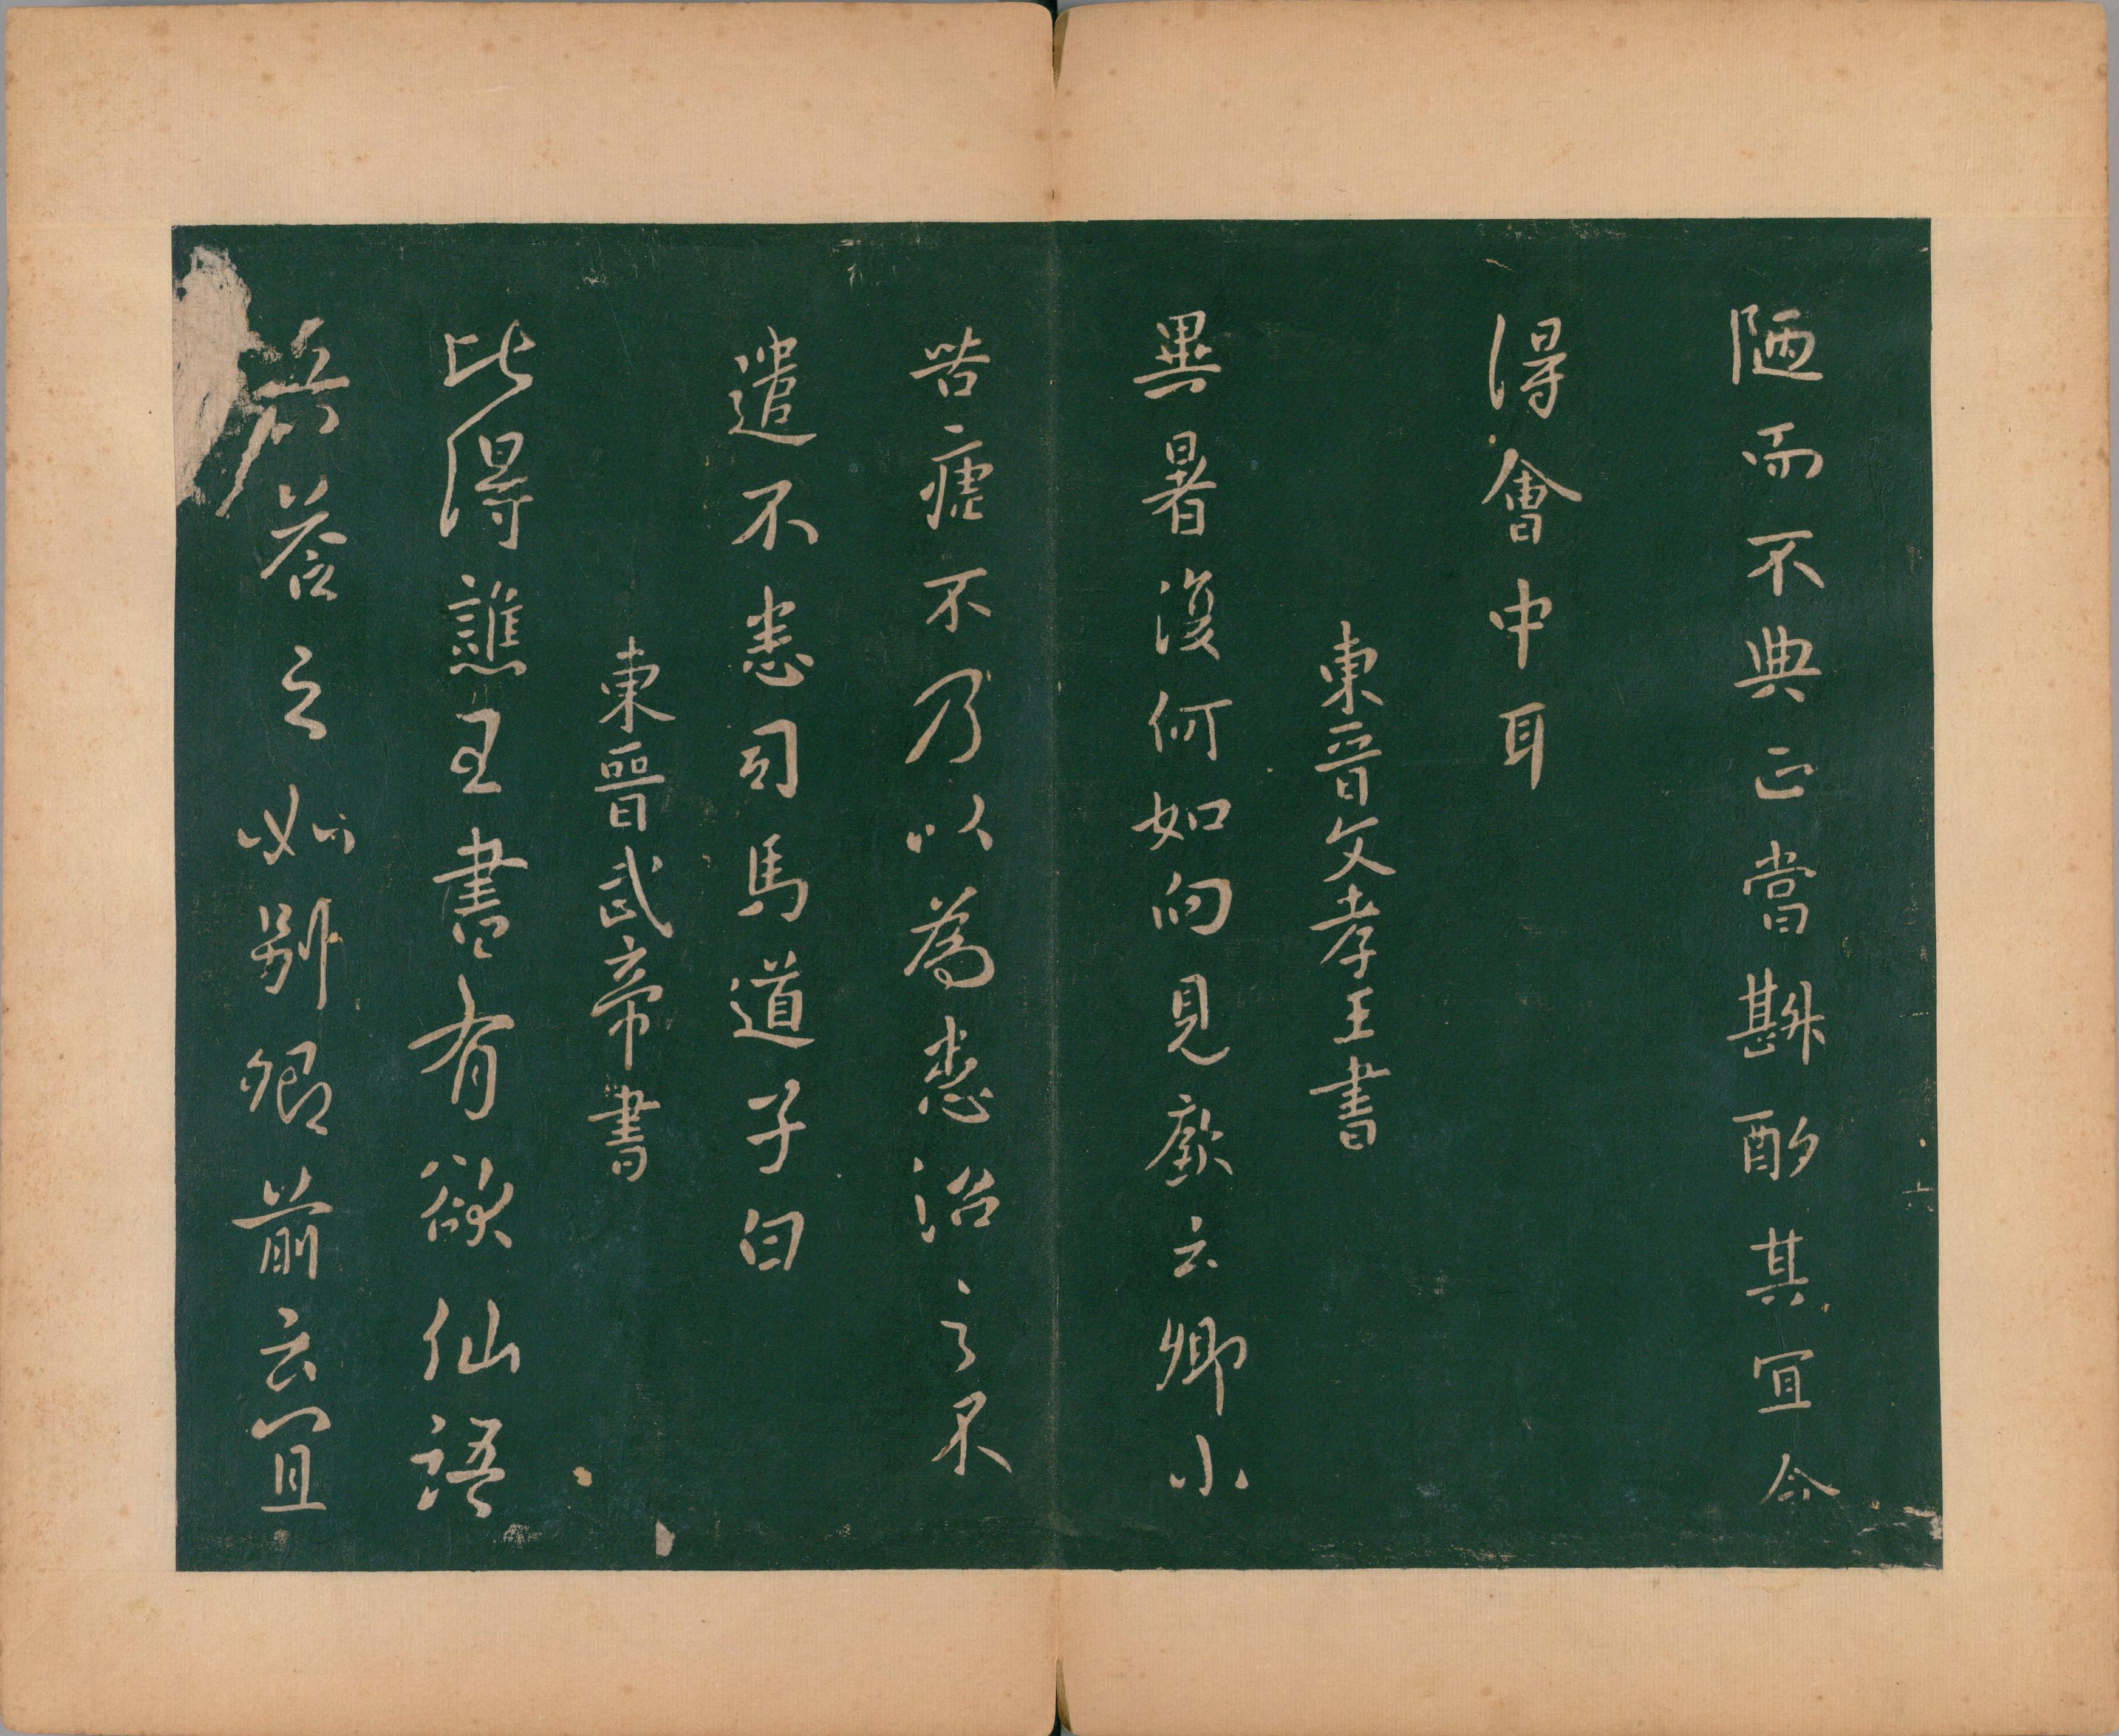 陋而不典正當斟酌其宜令
得會中耳
東晉文孝王書
異暑復何如向見廞云卿小
苦瘧不乃以為患治之不
遣不悉司馬道子白
東晉武帝書
比得譙王書有欲仙語
答之如別卿前云宜